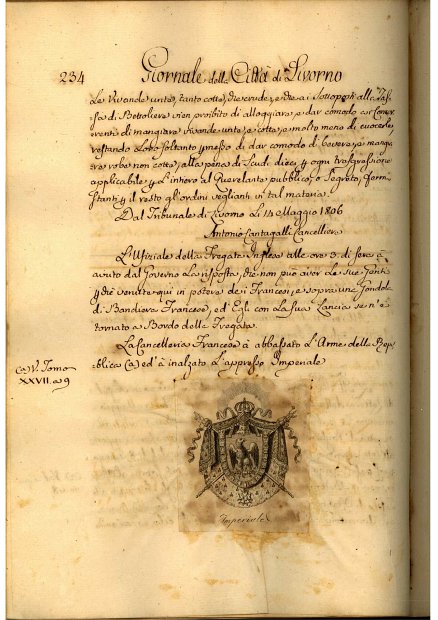 234 Giornale della Città di Livorno
Le Vivande unte, tanto cotte, che crude, e che ai Sottoposti alla Tas-
sa di Bettoliere vien proibito di alloggiare, e dar comodo ai Concor-
renti di mangiare vivande unte, e cotte, e molto meno di cuocerle,
restando Loro soltanto permesso di dar comodo di bevere, e mangia-
re robe non cotte, alla pena di Scudi dieci p ogni trasgressione
applicabile p l'intiero al Querelante pubblico, o Segreto, ferme
stanti p il resto gl'ordini veglianti in tal materia.
Dal Tribunale di Livorno Li 14 Maggio 1806
Antonio Cantagalli Cancelliere
L'Ufiziale della Fregata Inglese alle ore 3. di sera à
avuto dal Governo La risposta, che non può aver Le sue Genti
p che venute qui in potere dei Francesi, e sopra una Gondola
di Bandiera Francese, ed' Egli con La sua Lancia se n'è
tornato a Bordo della Fregata.
La Cancelleria Francese à abbassato L'Arme della Rep-
pubblica (a) ed' à inalzato L'appresso Imperiale
(a) V. Tomo
XXVII. a 9
Imperiale